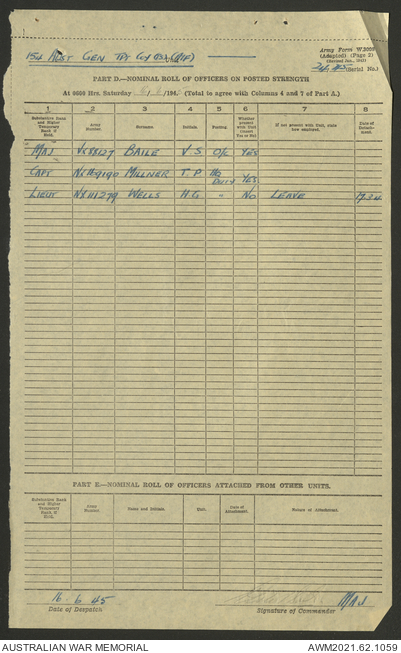 154 AUST GEN TPT COY (AIF)
Army Form W.3009
(Adapted) (Page 2)
Serial No.)
PART D.—NOMINAL ROLL OF OFFICERS ON POSTED STRENGTH
At 0600 Hrs. Saturday /194 (Total to agree with Columns 4 and 7 of Part A.)
1 2 3 4 5 6 7 8
Substantive Rank and Higher Temporary Rank if Held. Army Number. Surname. Initials. Posting. Whether present with Unit (Insert Yes or No) If not present with Unit, state how employed. Date of Detachment.
MAJ VX88127 BAILE V.S O/C YES
CAPT MILLNER T.P. HQ Duty YES
LIEUT NX111279 WELLS H.G. " NO LEAVE
PART E.—NOMINAL ROLL OF OFFICERS ATTACHED FROM OTHER UNITS.
Substantive Rank and Higher Temporary Rank if Held. Army Number. Name and Initials. Unit. Date of Attachment. Reason of Attachment.
16.6.45 MAJ
Date of Despatch Signature of Commander
AUSTRALIAN WAR MEMORIAL AWM2021.62.1059